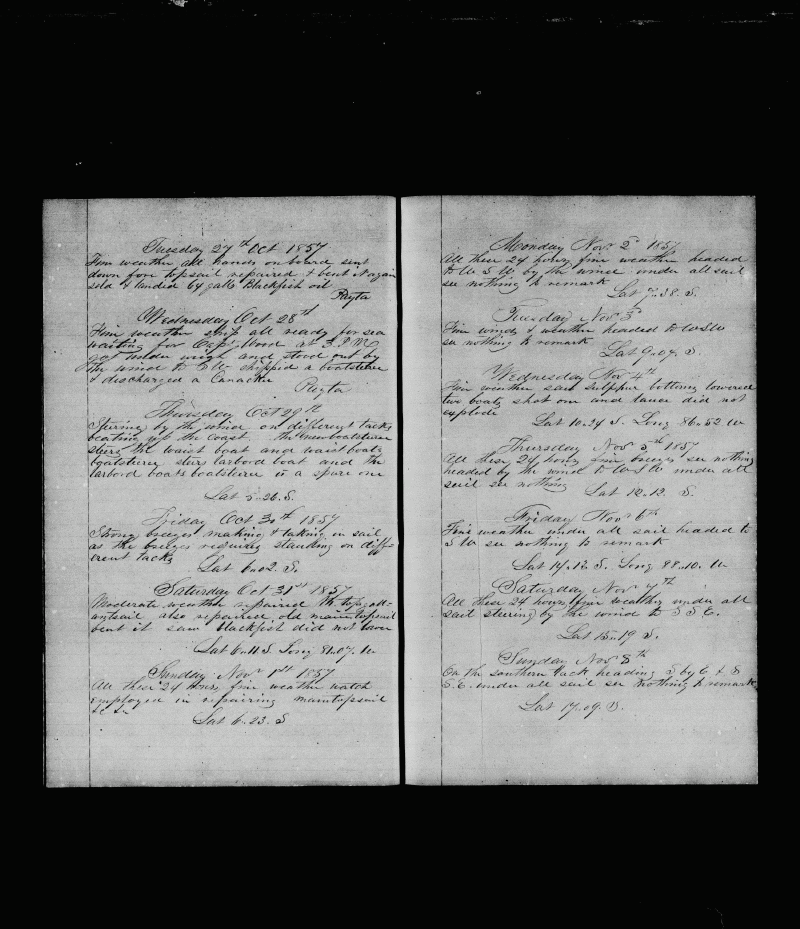 Tuesday 27th Oct 1857
Fine weather all hands on board sent
down fore topsail repaired & bent it again
sold & landed 64 galls Blackfish oil
Payta
Wednesday Oct 28th
Fine weather ship all ready for sea
waiting for Capt Wood at 3 P.M.
got under weigh and stood out by
the wind to S.W. shipped a boatsteerer
& discharged a Canacker
Payta
Thursday Oct 29th
Steering by the wind on different tacks
beating up the coast. the new boatsteerer
steers the waist boat and waist boats
boatsteerer steers larbord boat and the
larbord boats boatsteerer is a spare one
Lat 5..26. S.
Friday Oct 30th 1857
Strong breezes making & taking in sail
as the breezes requires standing on diff-
erent tacks
Lat 6..02. S.
Saturday Oct 31st 1857
Moderate weather repaired topgall-
antsail also repaired old maintopsail
bent it saw blackfish did not lower
Lat 6..11 S. Long 81..07. W
Sunday Nov 1st 1857
All these 24 hours fine weather watch
employed in repairing maintopsail
&c &c
Lat 6..23. S
Monday Nov 2d 1857
All these 24 hours fine weather headed
to W. S W. by the wind under all sail
see nothing to remark
Lat 7..38. S.
Tuesday Nov 3d
Fine winds & weather headed to WSW
see nothing to remark
Lat 9..07. S.
Wednesday Nov 4th
Fine weather saw sulphur bottoms lowered
two boats shot one and lance did not
explode
Lat 10..24 S. Long 86..52 W
Thursday Nov 5th 1857
All these 24 hours fine breezes see nothing
headed by the wind to WSW under all
sail see nothing
Lat 12..12. S.
Friday Nov 6th
Fine weather under all sail headed to
S W see nothing to remark
Lat 14..12 S. Long 88..10. W
Saturday Nov 7th
All these 24 hours fine weather under all
sail steering by the wind to S S E.
Lat 15..19 S.
Sunday Nov 8th
On the southern tack heading S by E & S
S. E. under all sail see nothing to remark
Lat 17..09 S.